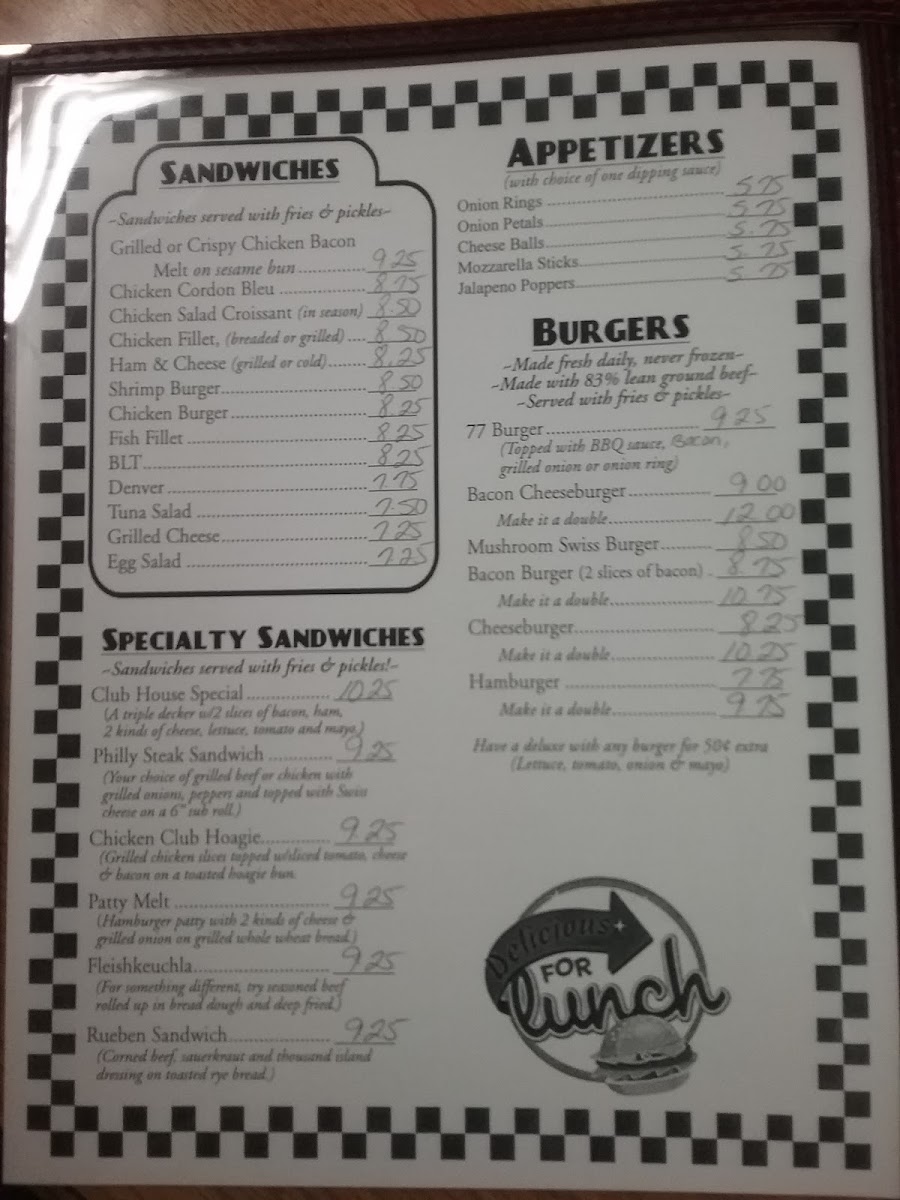 SANDWICHES
~Sandwiches served with fries & pickles~
Grilled or Crispy Chicken Bacon
Melt on sesame bun 9.25
Chicken Cordon Bleu 8.75
Chicken Salad Croissant (in season) 8.50
Chicken Fillet, (breaded or grilled) 8.50
Ham & Cheese (grilled or cold) 8.25
Shrimp Burger 8.50
Chicken Burger 8.25
Fish Fillet 8.25
BLT 8.25
Denver 7.75
Tuna Salad 7.50
Grilled Cheese 7.25
Egg Salad 7.25
SPECIALTY SANDWICHES
~Sandwiches served with fries & pickles!~
Club House Special 10.25
(A triple decker w/2 slices of bacon, ham,
2 kinds of cheese, lettuce, tomato and mayo.)
Philly Steak Sandwich 9.25
(Your choice of grilled beef or chicken with
grilled onions, peppers and topped with Swiss
cheese on a 6" sub roll.)
Chicken Club Hoagie 9.25
(Grilled chicken slices topped w/sliced tomato, cheese
& bacon on a toasted hoagie bun.
Patty Melt 9.25
(Hamburger patty with 2 kinds of cheese &
grilled onion on grilled whole wheat bread.)
Fleishkeuchla 9.25
(For something different, try seasoned beef
rolled up in bread dough and deep fried.)
Rueben Sandwich 9.25
(Corned beef, sauerkraut and thousand island
dressing on toasted rye bread.)
APPETIZERS
(with choice of one dipping sauce)
Onion Rings 5.75
Onion Petals 5.75
Cheese Balls 5.75
Mozzarella Sticks 5.75
Jalapeno Poppers 5.75
BURGERS
~Made fresh daily, never frozen~
~Made with 83% lean ground beef~
~Served with fries & pickles~
77 Burger 9.25
(Topped with BBQ sauce, Bacon,
grilled onion or onion ring)
Bacon Cheeseburger 9.00
Make it a double 12.00
Mushroom Swiss Burger 8.50
Bacon Burger (2 slices of bacon) 8.75
Make it a double 10.75
Cheeseburger 8.25
Make it a double 10.25
Hamburger 7.75
Make it a double 9.75
Have a deluxe with any burger for 50¢ extra
(Lettuce, tomato, onion & mayo)
Delicious
FOR
lunch